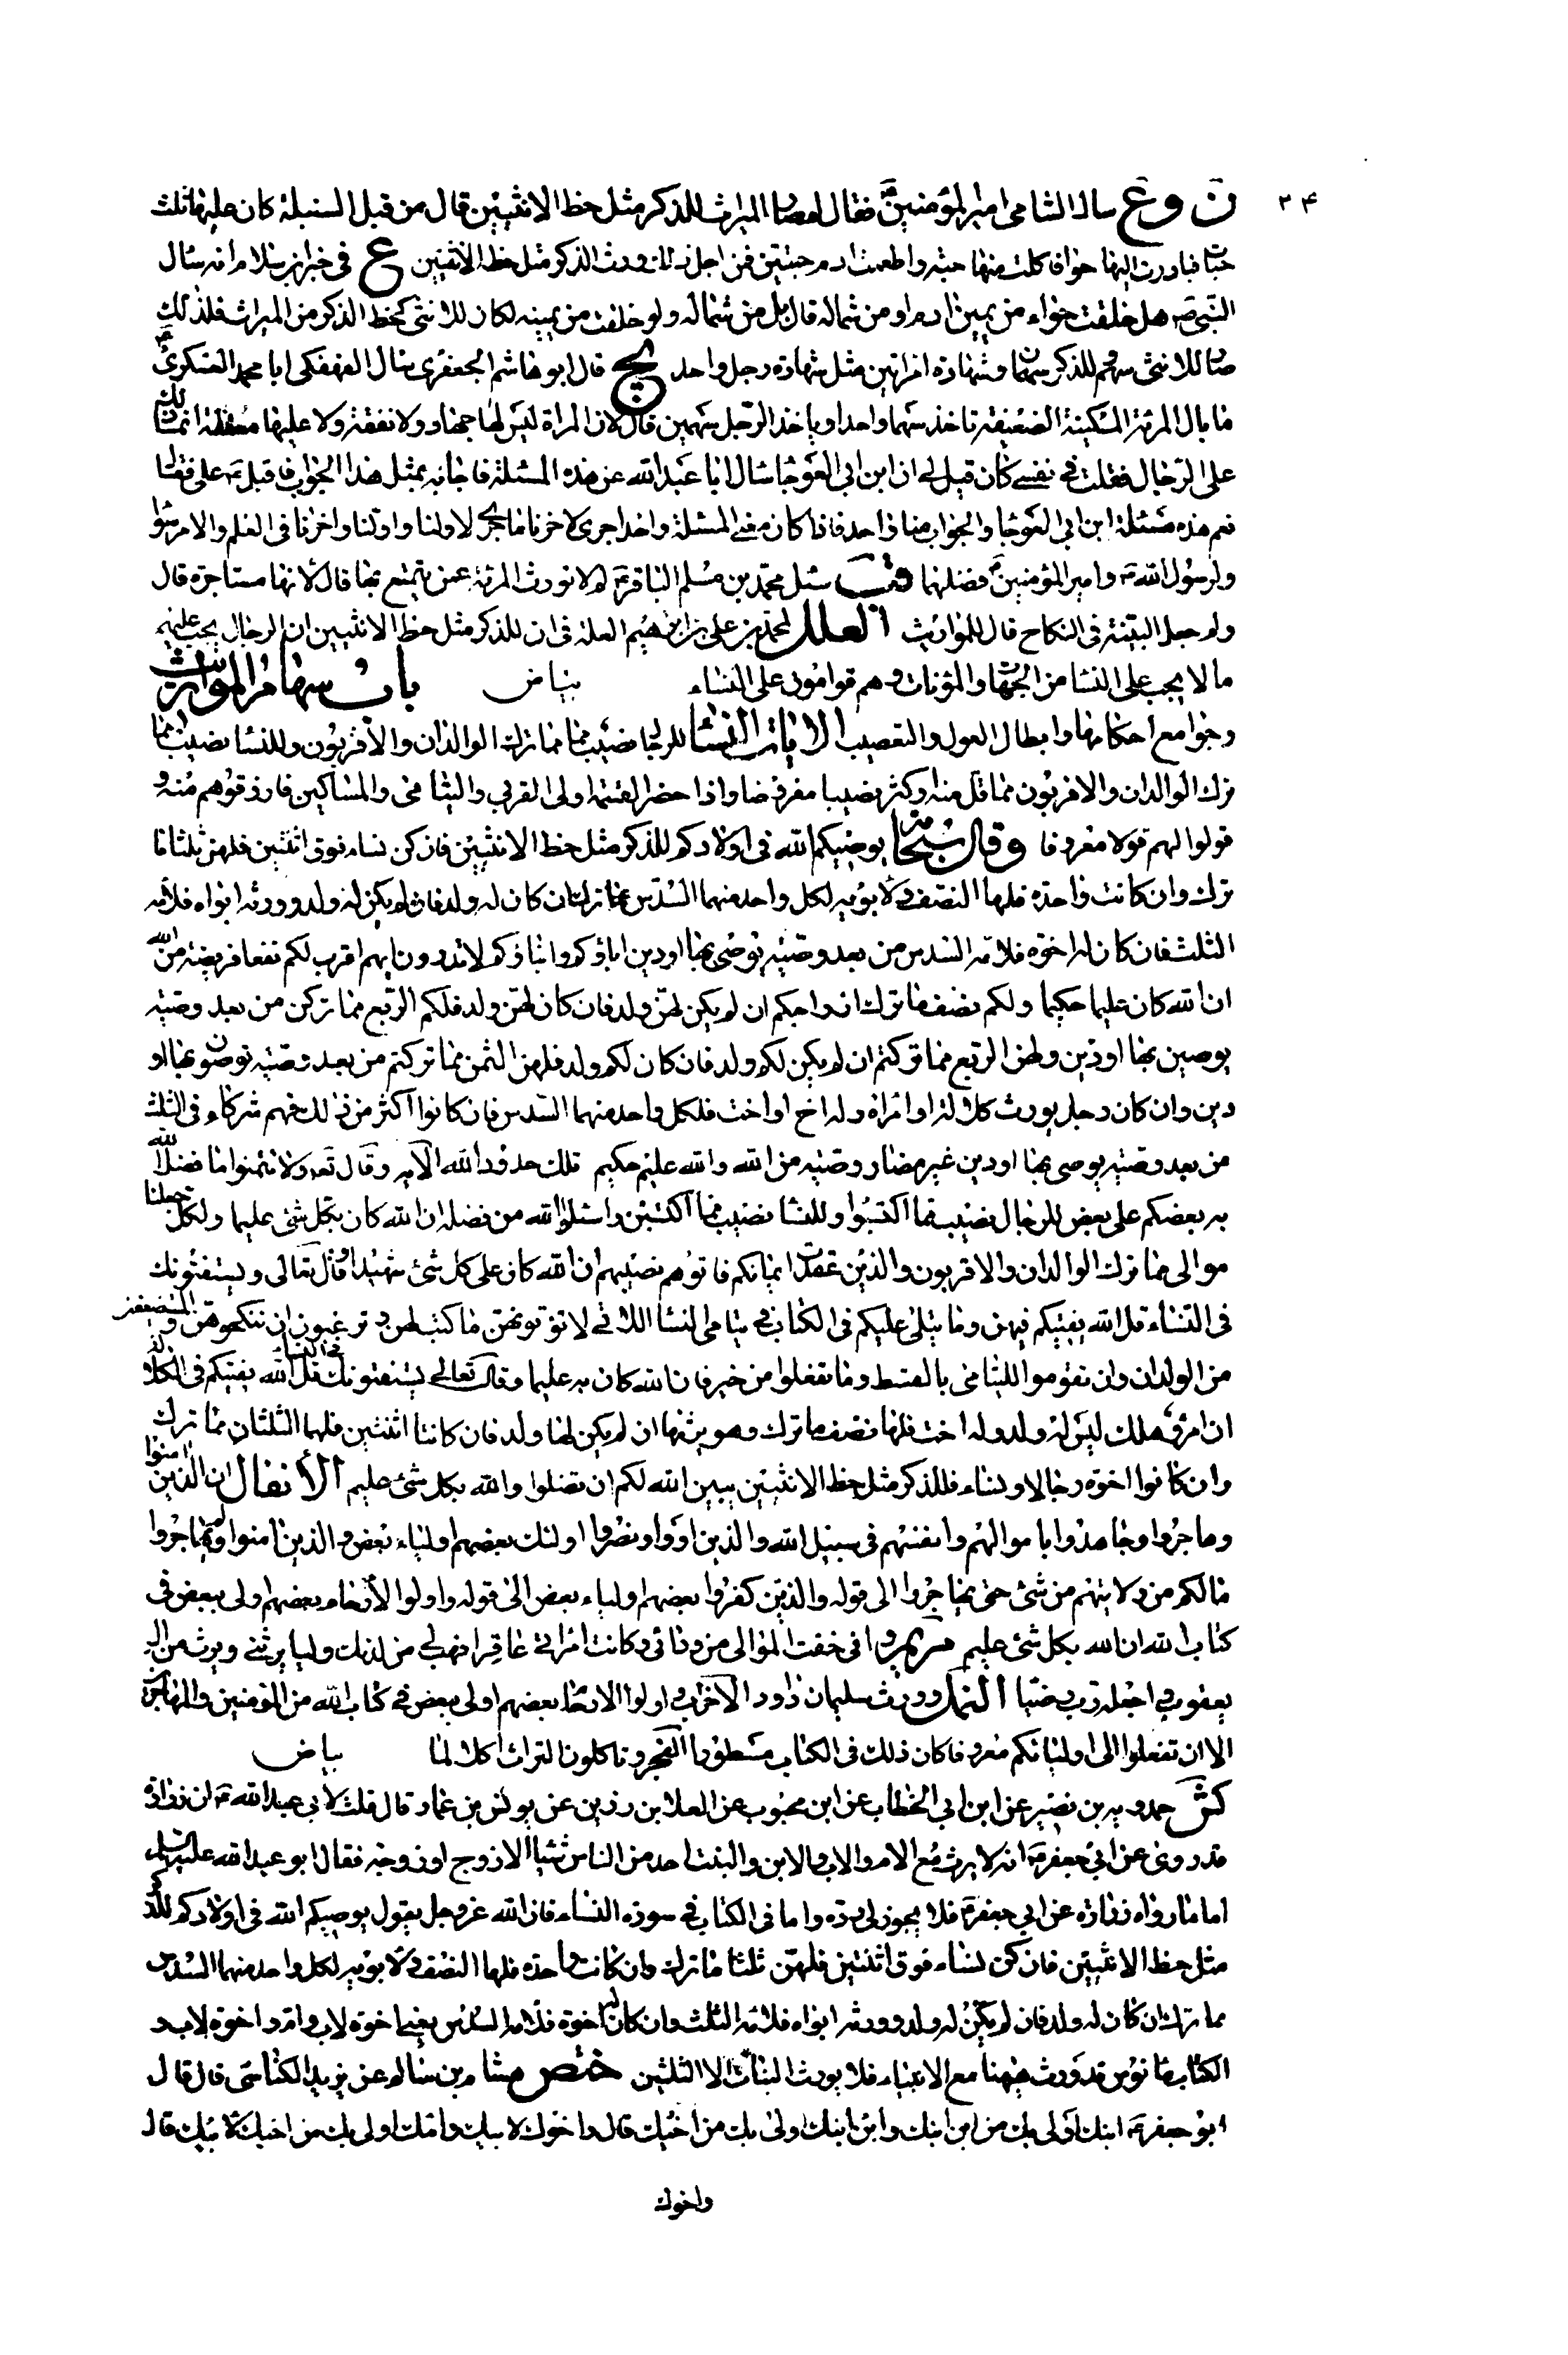 ٢۴
ن وع سال الشامي امير المؤمنينؑ فقال لم صار الميراث للذكر مثل حظ الانثيين قال من قبل السنبلة كان عليها ثلث
حبات فبادرت اليها حوا فاكلت منها حبة واطعمت ادم حبتين فمن اجل ذلك ورث الذكر مثل حظ الانثيين ع في خبر ابن سلام انه سال
النبيؐ هل خلقت حواء من يمين ادم او من شماله قال بل من شماله ولو خلقت من يمينه لكان للانثى كحظ الذكر من الميراث فلذلك
صار للانثى سهم وللذكر سهمان وشهادة امراتين مثل شهادة رجل واحد يج قال ابو هاشم الجعفري سال الفهفكي ابا محمد العسكريؑ
ما بال المرئة المسكينة الضعيفة تاخذ سهما واحدا وياخذ الرجل سهمين قال لان المراة ليس لها جهاد ولا نفقة ولا عليها معقلة انما ذلك
على الرجال فقلت في نفسي كان قيل لي ان ابن ابي العوجا سال ابا عبد الله عن هذه المسئلة فاجابه بمثل هذا الجواب فاقبل ع على فقال
نعم هذه مسئلة ابن ابي العوجا والجواب منا واحد فاذا كان معنى المسئلة واحدا جرى لاخرنا ما جرى لاولنا واولنا واخرنا في العلم والامر سوا
ولرسول الله ص وامير المؤمنينؑ فضلهما قب سئل محمد بن مسلم الباقر ع لم لا تورث المرئة عمن يتمتع بها قال لانها مستاجرة قال
ولم جعل البينة في النكاح قال للمواريث العلل لمحمد بن علي بن ابراهيم العلة في ان للذكر مثل حظ الانثيين ان الرجال يجب عليهم
ما لا يجب على النسا من الجهات والمؤنات وهم قوامون على النساء بياض باب سهام المواريث
وجوامع احكامها وابطال العول والتعصيب الايات النسا للرجال نصيب مما ترك الوالدان والاقربون وللنسا نصيب مما
ترك الوالدان والاقربون مما قل منه او كثر نصيبا مفروضا واذا حضر القسمة اولى القربى واليتامى والمساكين فارزقوهم منه و
قولوا لهم قولا معروفا وقال سبحانه يوصيكم الله في اولادكم للذكر مثل حظ الانثيين فان كن نساء فوق اثنتين فلهن ثلثا ما
ترك وان كانت واحدة فلها النصف ولابويه لكل واحد منهما السدس مما ترك ان كان له ولد فان لم يكن له ولد وورثه ابواه فلامه
الثلث فان كان له اخوة فلامه السدس من بعد وصية يوصي بها او دين اباؤكم وابناؤكم لا تدرون ايهم اقرب لكم نفعا فريضة من الله
ان الله كان عليما حكيما ولكم نصف ما ترك ازواجكم ان لم يكن لهن ولد فان كان لهن ولد فلكم الربع مما تركن من بعد وصية
يوصين بها او دين ولهن الربع مما تركتم ان لم يكن لكم ولد فان كان لكم ولد فلهن الثمن مما تركتم من بعد وصية توصون بها او
دين وان كان رجل يورث كلالة او امراة وله اخ او اخت فلكل واحد منهما السدس فان كانوا اكثر من ذلك فهم شركاء في الثلث
من بعد وصية يوصى بها او دين غير مضار وصية من الله والله عليم حكيم تلك حدود الله الآية وقال تعـ ولا تتمنوا ما فضل الله
به بعضكم على بعض للرجال نصيب مما اكتسبوا وللنسا نصيب مما اكتسبن واسئلوا الله من فضله ان الله كان بكل شئ عليما ولكل جعلنا
موالى مما ترك الوالدان والاقربون والذين عقدت ايمانكم فاتوهم نصيبهم ان الله كان على كل شئ شهيدا وقال تعالى ويستفتونك
في النساء قل الله يفتيكم فيهن وما يتلى عليكم في الكتاب في يتامى النسا اللاتي لا تؤتونهن ما كتب لهن وترغبون ان تنكحوهن والمستضعفين
من الولدان وان تقوموا لليتامى بالقسط وما تفعلوا من خير فان الله كان به عليما وقال تعالى يستفتونك في النساء قل الله يفتيكم في الكلالة
ان امرؤ هلك ليس له ولد وله اخت فلها نصف ما ترك وهو يرثها ان لم يكن لها ولد فان كانتا اثنتين فلهما الثلثان مما ترك
وان كانوا اخوة رجالا ونساء فللذكر مثل حظ الانثيين يبين الله لكم ان تضلوا والله بكل شئ عليم الأنفال ان الذين امنوا
وهاجروا وجاهدوا باموالهم وانفسهم في سبيل الله والذين اووا ونصروا اولئك بعضهم اولياء بعض والذين امنوا ولم يهاجروا
ما لكم من ولايتهم من شئ حتى يهاجروا الى قوله والذين كفروا بعضهم اولياء بعض الى قوله واولوا الأرحام بعضهم اولى ببعض في
كتاب الله ان الله بكل شئ عليم مريم واني خفت الموالى من ورائي وكانت امراتي عاقرا فهب لي من لدنك وليا يرثني ويرث من ال
يعقوب واجعله رب رضيا النمل وورث سليمان داود الاحزاب واولوا الارحام بعضهم اولى ببعض في كتاب الله من المؤمنين والمهاجرين
الا ان تفعلوا الى اوليائكم معروفا كان ذلك في الكتاب مسطورا الفجر وتاكلون التراث اكلا لما بياض
كش حمدويه بن نصير عن ابن ابي الخطاب عن ابن محبوب عن العلا بن رزين عن يونس بن عمار قال قلت لابي عبد الله ع ان زرارة
قد روى عن ابي جعفر ع انه لا يرث مع الام والاب والابن والبنت احد من الناس شيئا الا زوج او زوجة فقال ابو عبد الله عليه السلم
اما ما رواه زرارة عن ابي جعفر ع فلا يجوز لي رده واما في الكتاب في سورة النساء فان الله عز وجل يقول يوصيكم الله في اولادكم للذكر
مثل حظ الانثيين فان كن نساء فوق اثنتين فلهن ثلثا ما ترك وان كانت واحدة فلها النصف ولابويه لكل واحد منهما السدس
مما ترك ان كان له ولد فان لم يكن له ولد وورثه ابواه فلامه الثلث وان كان له اخوة فلامه السدس يعني اخوة لاب وام واخوة لاب و
الكتاب يا يونس قد ورث هيهنا مع الابناء فلا يورث البنات الا الثلثين ختص هشام بن سالم عن يزيد الكناسي قال قال
ابو جعفر ع ابنك اولى بك من ابن ابنك وابن ابنك اولى بك من اخيك قال واخوك لابيك وامك اولى بك من اخيك لابيك قال
واخوك